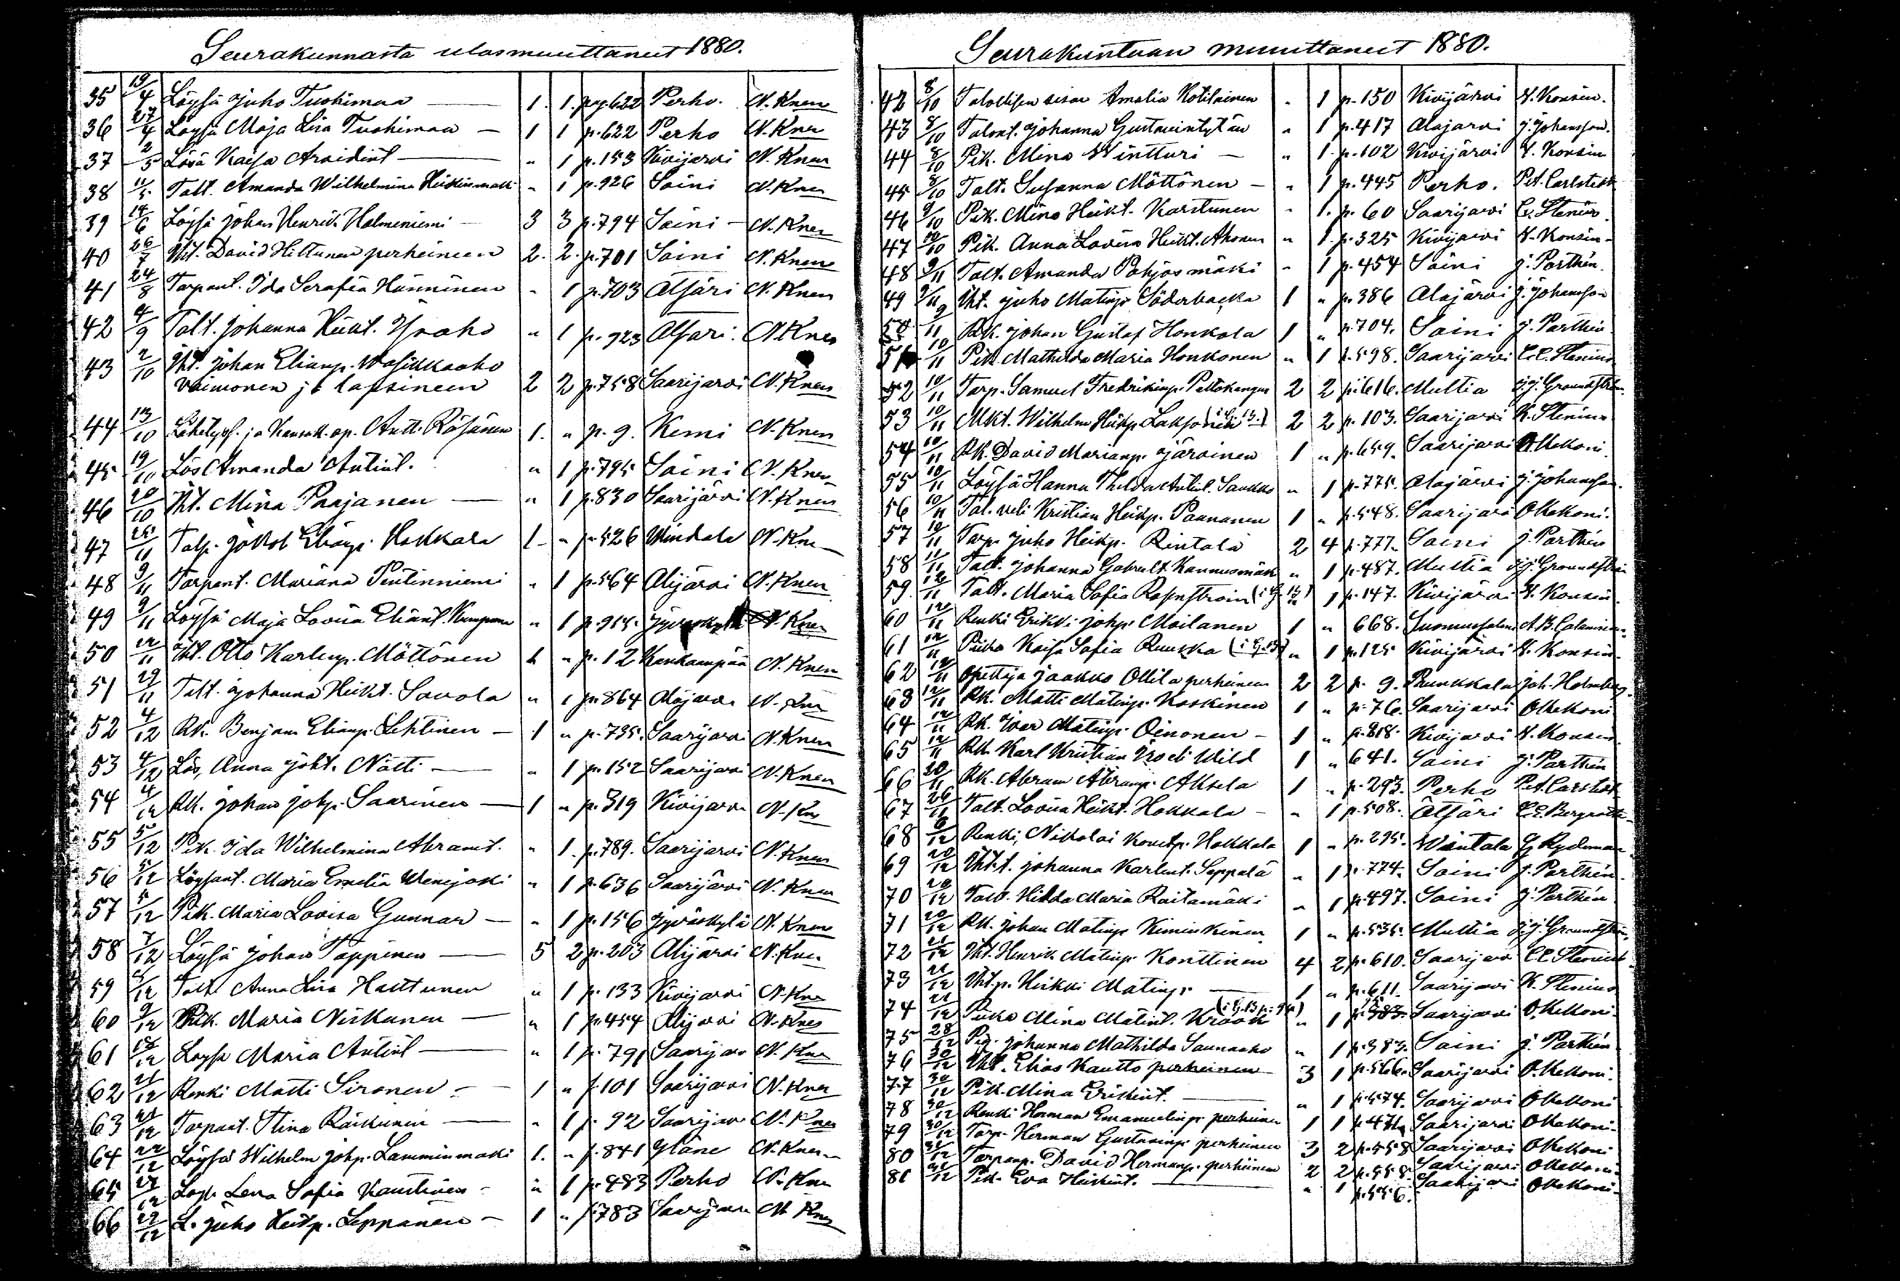 Seurakunnasta ulosmuuttaneet 1880.
35 19/4 Löysä Juho Tuohimaa 1. 1. pag. 622 Perho. N. Knen
36 27/4 Löysä Maja Lisa Tuohimaa 1 1 p. 622 Perho N. Knen
37 2/5 Kaisa 1 p. 153 Kivijärvi N. Knen
38 11/5 Talt. Amanda Wilhelmina " 1 p. 926 Soini N. Knen
39 14/6 Löysä Johan Henrik Halmeniemi 3 3 p. 794 Soini N. Knen
40 26/7 Itt. David Hittunen perheineen 2. 2. p. 701 Soini N. Knen
41 24/8 Torpant. Ida Serafia Hänninen " 1 p. 703 Atsäri N. Knen
42 4/9 Talt. Johanna Heikt. " 1 p. 923 Atsäri N. Knen
43 2/10 Itt. Johan Eliasp.
Vaimonen ja lapsineen 2 2 p. 758 Saarijärvi N. Knen
44 13/10 ja Kansak. op. Antt. Räsänen 1. " p. 9. Kemi N. Knen
45 19/10 Amanda Antint. " 1 p. 795 Soini N. Knen
46 20/10 Itt. Mina Paajanen " 1 p. 830 Saarijärvi N. Knen
47 25/11 Talp. Jakob Eliasp. Hakkara 1 " p. 526 Windala N. Knen
48 9/11 Torpant. Mariana " 1 p. 564 Alajärvi N. Knen
49 9/11 Löysä Maja Lovisa Eliant. Kumpunen " 1 p. 915 Jyväskylä N. Knen
50 22/11 Itt. Otto Karlinp. Möttönen 1 " p. 12 Kankaanpää N. Knen
51 29/11 Talt. Johanna Heikt. Savola " 1 p. 864 Alajärvi N. Knen
52 4/12 Rk. Benjam Eliasp. Lehtinen 1 " p. 735. Saarijärvi N. Knen
53 4/12 Lös. Anna Joht. Nätti " 1 p. 152 Saarijärvi N. Knen
54 4/12 Rk. Johan Johp. Saarinen 1 " p. 319 Kivijärvi N. Knen
55 5/12 Pik. Ida Wilhelmina Abramt. " 1 p. 789. Saarijärvi N. Knen
56 5/12 Löysänt. Maria Emelia " 1 p. 636 Saarijärvi N. Knen
57 5/12 Pik. Maria Lovisa Gunnar " 1 p. 156 Jyväskylä N. Knen
58 7/12 Löysä Johan Tappinen 5 2 p. 203 Alajärvi N. Knen
59 8/12 Talt. Anna Lisa Hattunen " 1 p. 133 Kivijärvi N. Knen
60 9/12 Pik. Maria Niskanen " 1 p. 454 Alajärvi N. Knen
61 18/12 Löysä Maria Antint " 1 p. 791 Saarijärvi N. Knen
62 21/12 Renki Matti Sironen 1 " p. 101 Saarijärvi N. Knen
63 21/12 Torpant. Stina Räikkinen " 1 p. 92 Saarijärvi N. Knen
64 22/12 Löysä Wilhelm Johp. Lamminmäki 1. " p. 841 Yläne N. Knen
65 27/12 Löys. Lena Sofia Kauttinen " 1 p. 483 Perho N. Knen
66 29/12 L. Juho Heikp. Leppänen 1 " p. 783 Saarijärvi N. Knen
Seurakuntaan muuttaneet 1880.
42 8/10 Talollisen sisar Amalia Kotilainen " 1 p. 150 Kivijärvi K. Konsin.
43 8/10 Talont. Johanna " 1 p. 417 Alajärvi J. Johansson.
44 8/10 Pik. Mina Wintturi " 1 p. 102 Kivijärvi K. Konsin
45 8/10 Talt. Susanna Möttönen " 1 p. 445 Perho. Pet. Carlstedt
46 9/10 Pik. Mina Heikt. Karstunen " 1. p. 60 Saarijärvi Stenius.
47 10/10 Pik. Anna Lovisa Heikt. Ahonen " 1 p. 325 Kivijärvi K. Konsin
48 9/11 Talt. Amanda Pohjosmäki " 1 p. 454 Soini J. Porthén.
49 9/11 Itt. Juho Matinp. Söderbacka 1 " p. 386 Alajärvi J. Johansson
50 9/11 Rk. Johan Gustaf Honkola 1 " p. 704. Soini J. Porthén
51 10/11 Pik. Mathilda Maria Honkonen " 1 p. 598. Saarijärvi Stenius
52 10/11 Torp. Samuel Fredrikinp. Peltokangas 2 2 p. 616. Multia J.J. Grundström
53 10/11 Mkt. Wilhelm Heikp. Laksonen 2 2 p. 103. Saarijärvi K. Stenius
54 10/11 Rk. David Marianp. Järvinen 1 " p. 659. Saarijärvi O Kekoni.
55 10/11 Löysä Hanna Thilda Antint. Saukko " 1 p. 775. Alajärvi J. Johansson.
56 10/11 Tal. veli Kristian Heikp. Paananen 1 " p. 548. Saarijärvi O Kekoni.
57 10/11 Torp. Juho Heikp. Rintala 2 4 p. 777. Soini J. Porthén
58 11/11 Talt. Johanna Gabrielt. Kannusmäki " 1 p. 487. Multia J.J. Grundström
59 12/11 Talt. Maria Sofia " 1 p. 147. Kivijärvi K. Konsin.
60 12/11 Renki Erikki Johp. Moilanen 1 " 668. Suomussalmi A.B. Calamnius
61 12/11 Piika Kaisa Sofia Ruuska " 1 p. 125 Kivijärvi K. Konsin.
62 12/11 Opettaja Jaakko Ollila perheineen 2 2 p. 9. Ruukkala Joh. Holmberg.
63 12/11 Rk. Matti Matinp. Koskinen 1 " p. 76. Saarijärvi O Kekoni
64 12/11 Rk. Iver Matinp. Oinonen 1 " p. 818. Kivijärvi K. Konsin.
65 12/11 Rk. Karl Kristian Wild 1 " 641. Soini J. Porthén
66 20/11 Rk. Abram Abramp. Aksela 1 " p. 293. Perho Pet. Carlstedt
67 26/11 Talt. Lovisa Heikt. Hakkala " 1 p. 508. Ätsäri C.E. Bergroth
68 6/12 Renki, Nikolai Hakkala 1 " p. 295. Wintala G Rydman
69 20/12 Itt. Johanna Karlint. Seppälä " 1 p. 774. Soini J. Porthén.
70 20/12 Talt. Hilda Maria Raitamäki " 1 p. 497. Soini J. Porthén
71 20/12 Rk. Johan Matinp. Kiminkinen 1 " p. 535. Multia J.J. Grundström
72 21/12 Itt. Henrik Matinp. Konttinen 4 2 p. 610. Saarijärvi Stenius
73 21/12 Itt. p. Heikki Matinp. 1 " p. 611. Saarijärvi K. Stenius
74 21/12 Piika Mina Matint. Krook " 1 p. 383. Saarijärvi O. Kekoni.
75 28/12 Pig. Johanna Mathilda Saunaaho " 1 p. 383. Soini J. Porthén
76 30/12 Itt. Elias Kautto perheineen 3 1 p. 566. Saarijärvi O. Kekoni.
77 30/12 Pik. Mina Erikint. " 1 p. 574. Saarijärvi O Kekoni
78 30/12 Renki Herman Emanuelinp. perheineen 1 1 p. 471. Saarijärvi O Kekoni
79 30/12 Torp. Herman Gustavinp. perheineen 3 2 p. 558 Saarijärvi O Kekoni
80 31/12 Torpanp. David Hermanp. perheineen 2 2 p. 558. Saarijärvi O Kekoni
81 31/12 Pik. Eva Heikint. " 1 p. 556. Saarijärvi O Kekoni